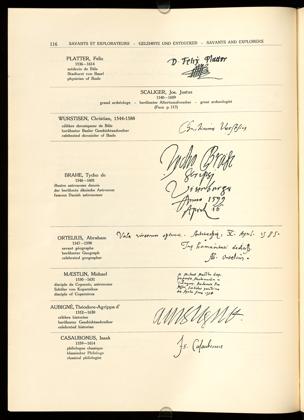 116 SAVANTS ET EXPLORATEURS - GELEHRTE UND ENTDECKER - SAVANTS AND EXPLORERS
PLATTER, Felix
1536—1614
médecin de Bâle
Stadtarzt von Basel
physician of Basle
D. Felix Platter
SCALIGER, Jos. Justus
1540—1609
grand archéologue - berühmter Altertumsforscher - great archeologist
(Face p. 117)
WURSTISEN, Christian, 1544-1588
célèbre chroniqueur de Bâle
berühmter Basler Geschichtsschreiber
celebrated chronicler of Basle
BRAHE, Tycho de
1546—1601
illustre astronome danois
der berühmte dänische Astronom
famous Danish astronomer
Tycho Brahe
Anno 1599
April
ORTELIUS, Abraham
1527—1598
savant géographe
berühmter Geograph
celebrated geographer
Vale virorum optime.
1585.
MÆSTLIN, Michael
1550—1631
disciple de Copernic, astronome
Schüler von Kopernikus
disciple of Copernicus
AUBIGNÉ, Théodore-Agrippa d'
1552—1630
célèbre historien
berühmter Geschichtsschreiber
celebrated historian
CASAUBONUS, Isaak
1559—1614
philologue classique
klassischer Philologe
classical philologist
Is. Casaubonus